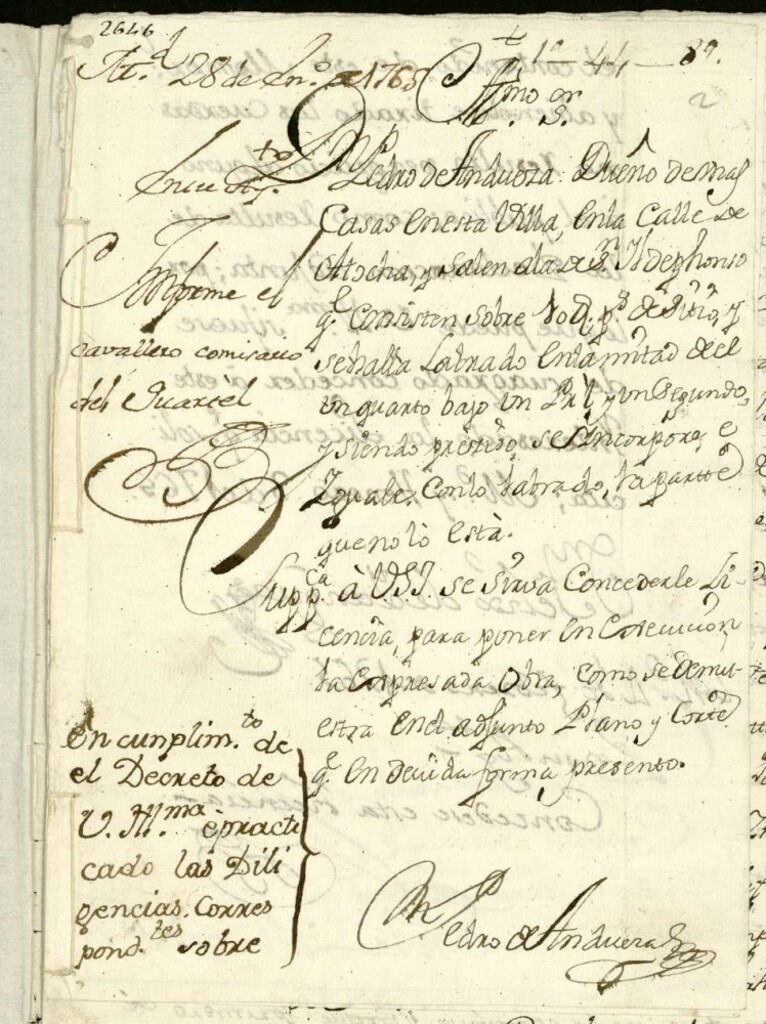 2646
1ª — 44 — 89.
2
Md. 28 de En.º de 1765
Illmo. Sor.
En su Ay.to
Informe el
cavallero comisario
del Quartel
Dn. Pedro de Andueza. Dueño de unas
Casas en esta Villa, en la Calle de
Atocha, y salen a la de Sn. Ildephonso
q.e consisten sobre pˢ de Sitio, y
se halla Labrado en la mitad de el
un quarto bajo un Pral y un Segundo,
y siendo preciso, se Incorpore, e
Yguale, con lo labrado, la parte
que no lo està.
Supp.ca à VSI. se sirva Concederle Li-
cencia, para poner en Execucion,
la Expresada Obra, como se demu-
estra en el adjunto Plano y Corte
q.e en devida forma presento.
Dn. Pedro de Andueza
En cunplim.to de
el Decreto de
V. Ill.ma è practi
cado las Dili
gencias. Corres
pond.tes sobre